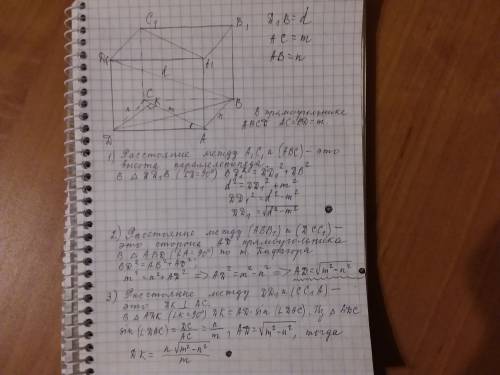 C₁
B₁
D₁
A₁
d
C
K
B
n
m
n
D
A
D₁B = d
AC = m
AB = n
В прямоугольнике
ABCD AC=BD=m
1) Расстояние между A₁C₁ и (ABC) – это
высота параллелепипеда.
В △ DD₁B (∠D=90°) BD₁² = DD₁² + DB²
d² = DD₁² + m²
DD₁² = d² – m²
DD₁ = √d² – m²
2) Расстояние между (ABB₁) и (DCC₁) –
это сторона AD прямоугольника
В △ ABD (∠A = 90°) по т. Пифагора
BD² = AB² + AD²
m² = n² + AD² => AD² = m² – n² => AD = √m² – n²
3) Расстояние между DD₁ и (CC₁A) –
это DK ⊥ AC.
В △ ADK (∠K = 90°) DK = AD · sin(∠DAC). Из △ ADC
sin(∠DAC) = DC/AC = n/m, AD = √m² – n², тогда
DK = n √m² – n² / m